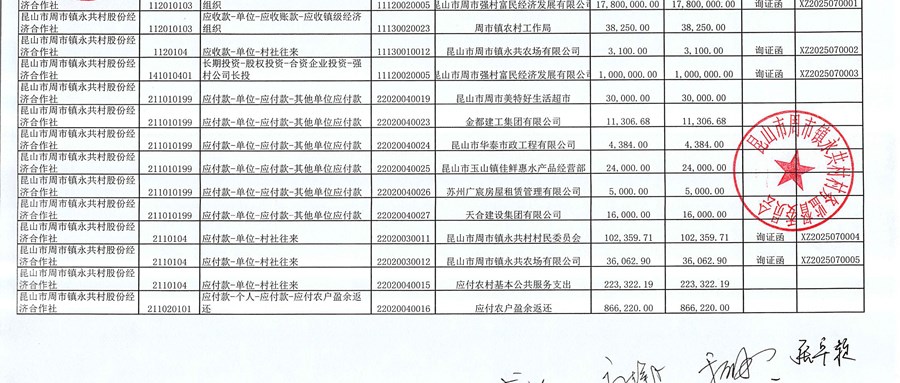 济合作社 112010103 组织 11120020005 昆山市周市强村富民经济发展有限公司 17,800,000.00 17,800,000.00 询证函 XZ2025070001
昆山市周市镇永共村股份经 应收款-单位-应收账款-应收镇级经济
济合作社 112010103 组织 11130020023 周市镇农村工作局 38,250.00 38,250.00
昆山市周市镇永共村股份经
济合作社 1120104 应收款-单位-村社往来 11130010012 昆山市周市镇永共农场有限公司 3,100.00 3,100.00 询证函 XZ2025070002
昆山市周市镇永共村股份经 长期投资-股权投资-合资企业投资-强
济合作社 141010401 村公司长投 11120020005 昆山市周市强村富民经济发展有限公司 1,000,000.00 1,000,000.00 询证函 XZ2025070003
昆山市周市镇永共村股份经
济合作社 211010199 应付款-单位-应付款-其他单位应付款 22020040019 昆山市周市美特好生活超市 30,000.00 30,000.00
昆山市周市镇永共村股份经
济合作社 211010199 应付款-单位-应付款-其他单位应付款 22020040023 金都建工集团有限公司 11,306.68 11,306.68
昆山市周市镇永共村股份经
济合作社 211010199 应付款-单位-应付款-其他单位应付款 22020040024 昆山市华泰市政工程有限公司 4,384.00 4,384.00
昆山市周市镇永共村股份经
济合作社 211010199 应付款-单位-应付款-其他单位应付款 22020040025 昆山市玉山镇佳鲜惠水产品经营部 24,000.00 24,000.00
昆山市周市镇永共村股份经
济合作社 211010199 应付款-单位-应付款-其他单位应付款 22020040026 苏州广宸房屋租赁管理有限公司 5,000.00 5,000.00
昆山市周市镇永共村股份经
济合作社 211010199 应付款-单位-应付款-其他单位应付款 22020040027 天合建设集团有限公司 16,000.00 16,000.00
昆山市周市镇永共村股份经
济合作社 2110104 应付款-单位-村社往来 22020030011 昆山市周市镇永共村村民委员会 102,359.71 102,359.71 询证函 XZ2025070004
昆山市周市镇永共村股份经
济合作社 2110104 应付款-单位-村社往来 22020030012 昆山市周市镇永共农场有限公司 36,062.90 36,062.90 询证函 XZ2025070005
昆山市周市镇永共村股份经
济合作社 2110104 应付款-单位-村社往来 22020040015 应付农村基本公共服务支出 223,322.19 223,322.19
昆山市周市镇永共村股份经 应付款-个人-应付款-应付农户盈余返
济合作社 211020101 还 22020040016 应付农户盈余返还 866,220.00 866,220.00
昆山市周市镇永共村村务监督委员会